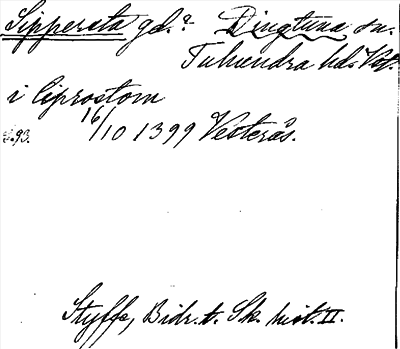 Lippersta gd.? Dingtuna sn.
Tuhundra hd. Vstm.
i liprostom
16/10 1399 Vesterås.
s. 93.
Styffe, Bidr. t. Sk. hist. II.